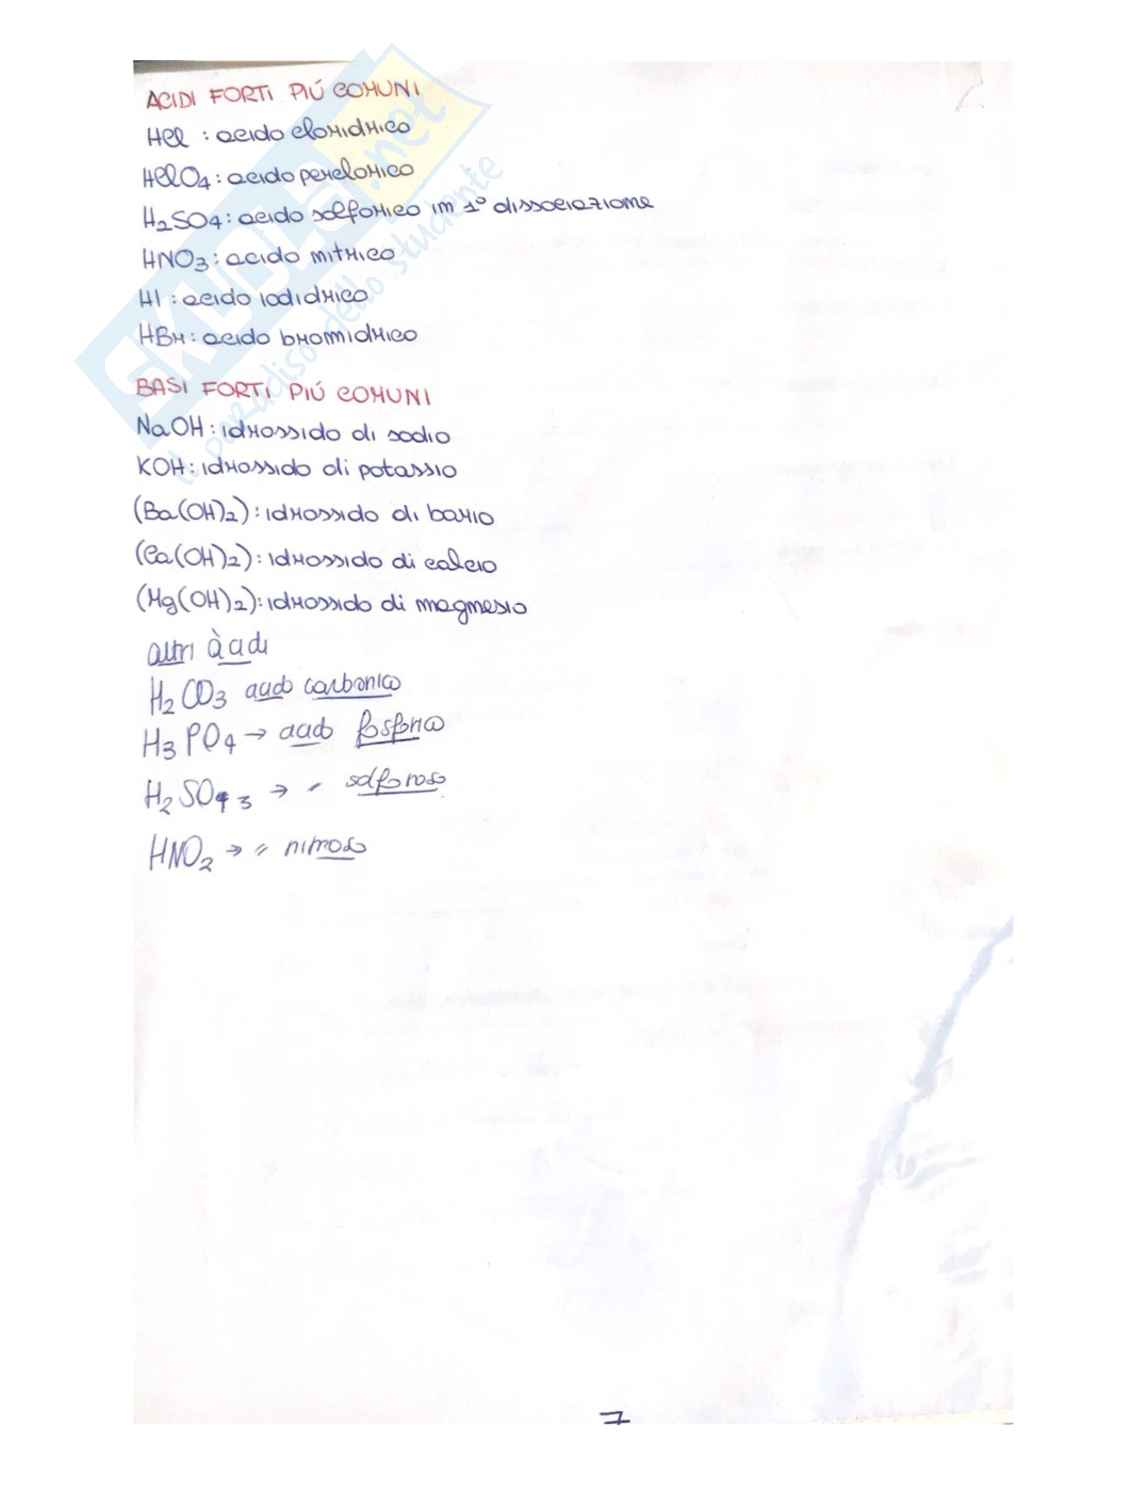 ACIDI FORTI PIÚ COMUNI
HCl : acido cloridrico
HClO4 : acido perclorico
H2SO4 : acido solforico in 1° dissociazione
HNO3 : acido nitrico
HI : acido iodidrico
HBr : acido bromidrico
BASI FORTI PIÚ COMUNI
NaOH : idrossido di sodio
KOH : idrossido di potassio
(Ba(OH)2) : idrossido di bario
(Ca(OH)2) : idrossido di calcio
(Mg(OH)2) : idrossido di magnesio
altri àcidi
H2CO3 acido carbonico
H3PO4 → acido fosforico
H2SO3 → " solforoso
HNO2 → " nitroso
7
SKUOLA.net
il paradiso dello studente